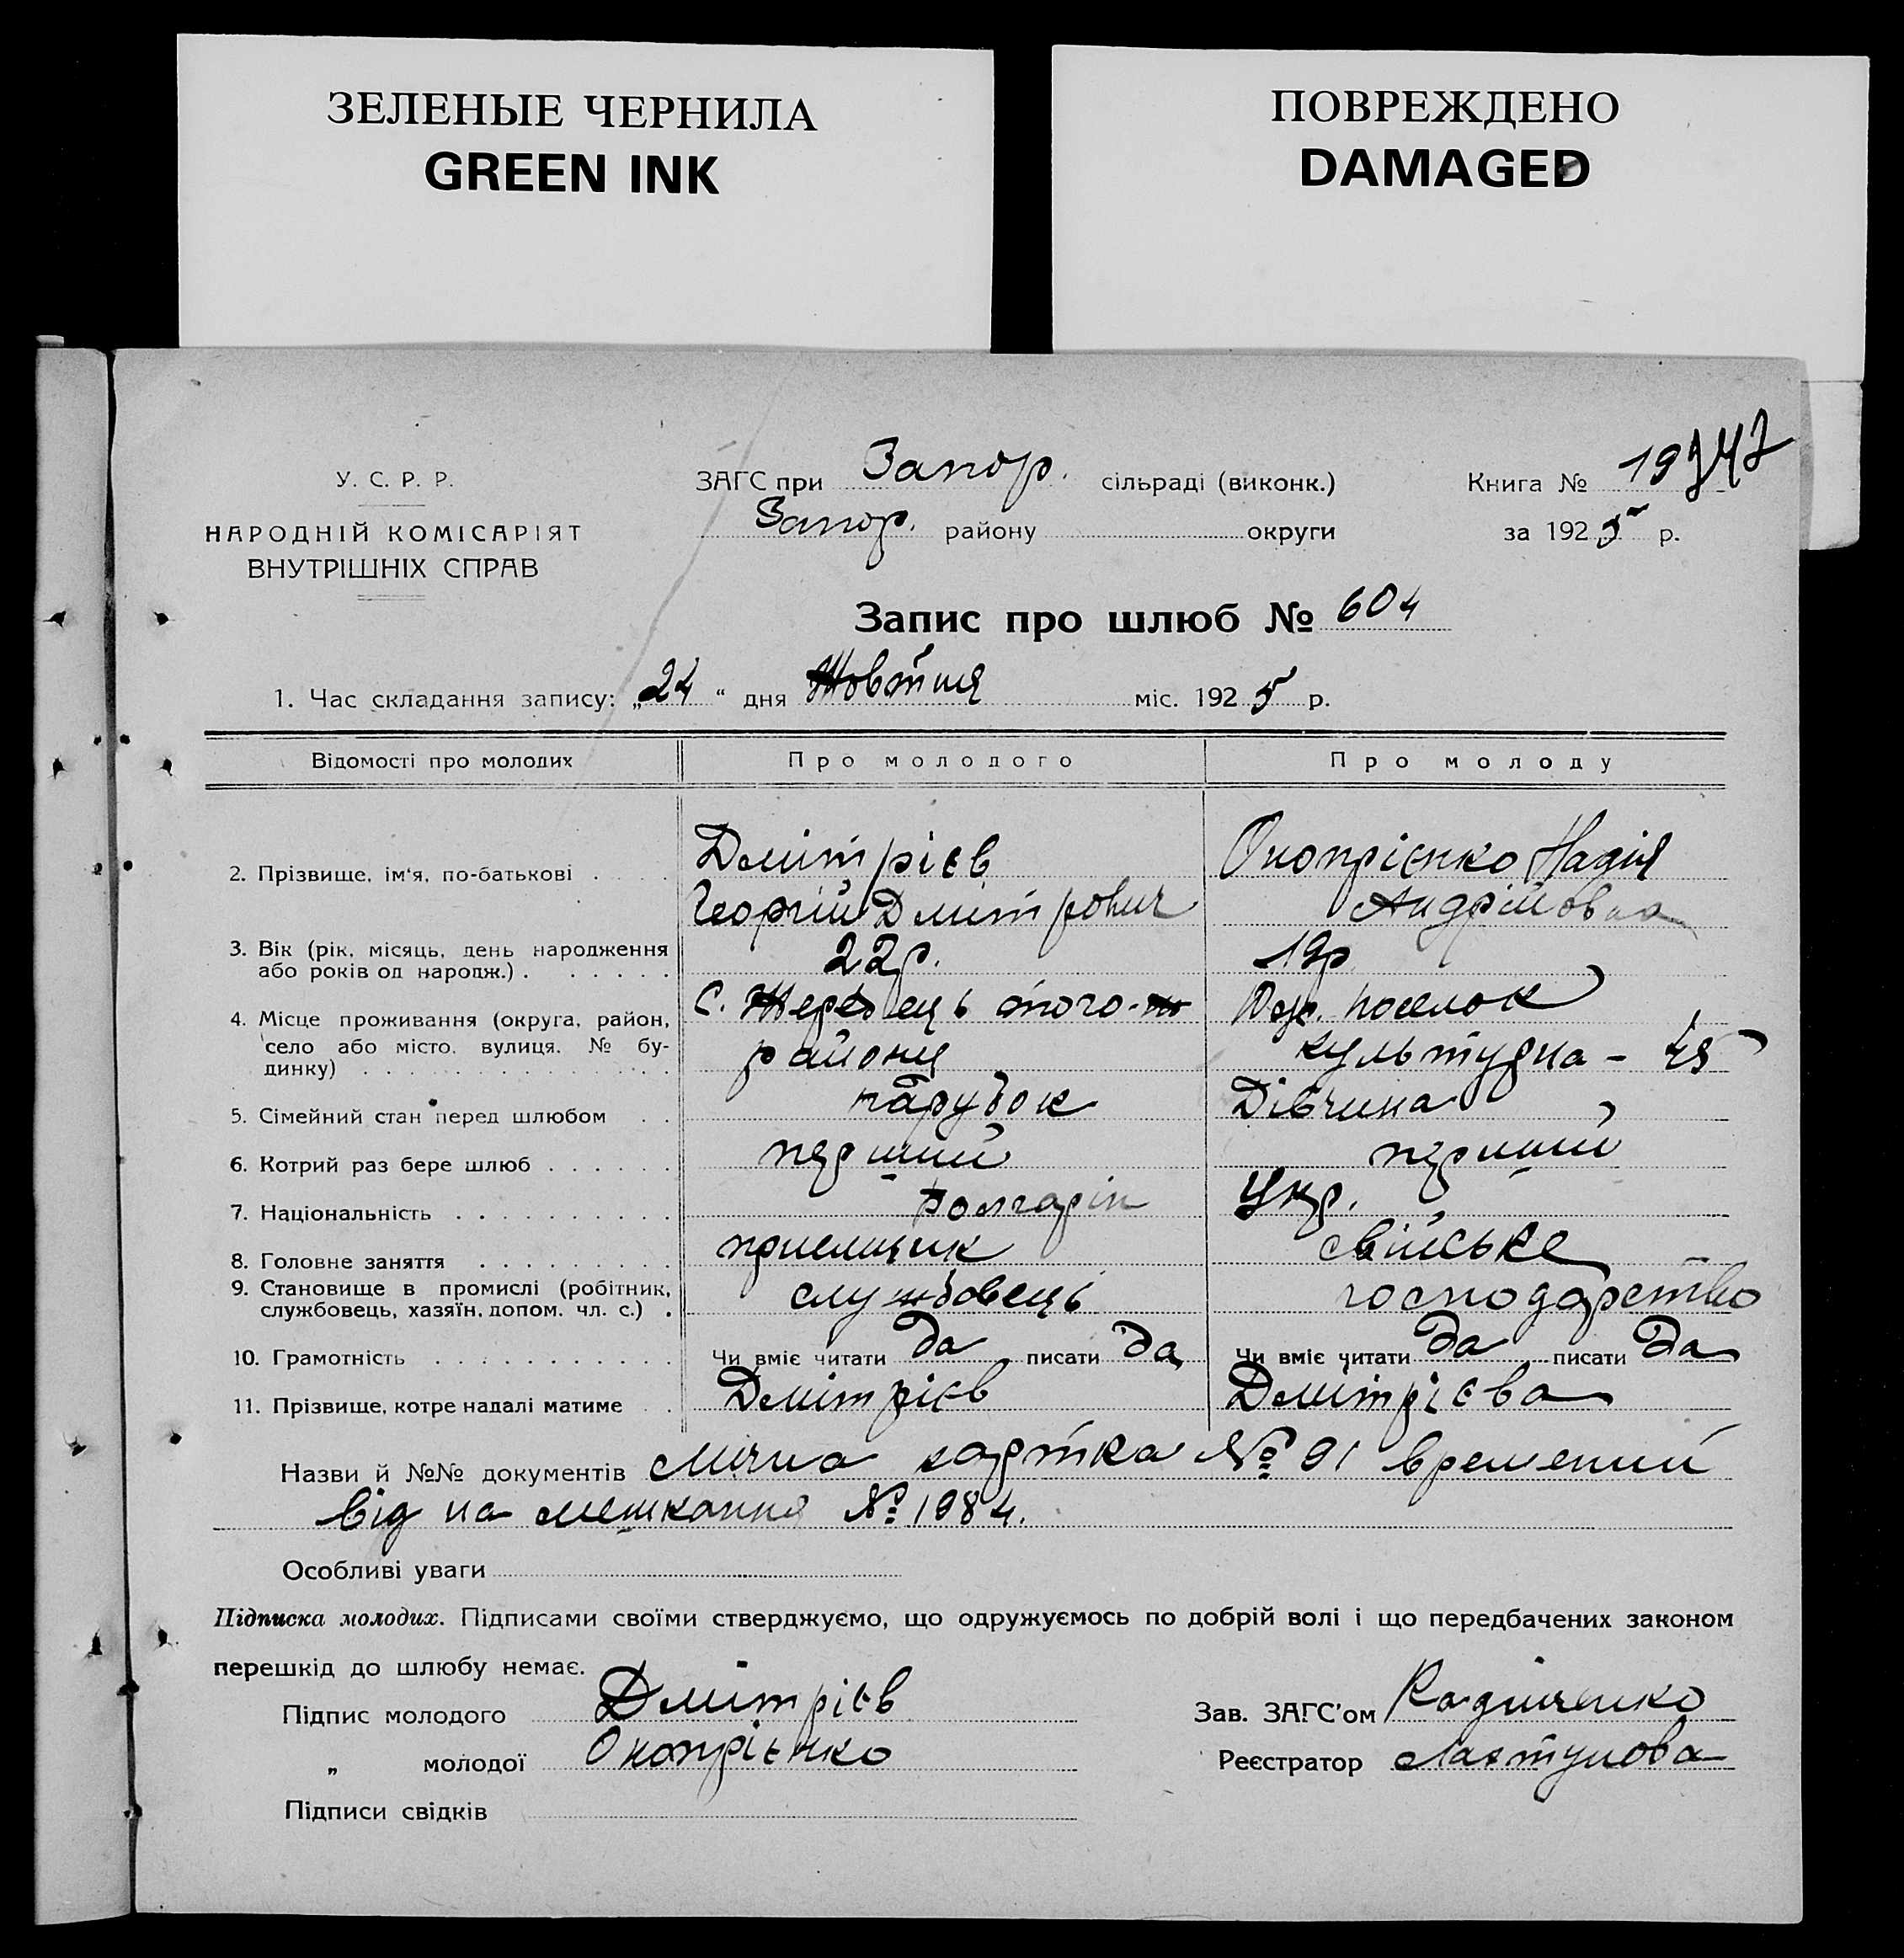 ЗЕЛЕНЫЕ ЧЕРНИЛА
GREEN INK
ПОВРЕЖДЕНО
DAMAGED
У. С. Р. Р.
НАРОДНІЙ КОМІСАРІЯТ
ВНУТРІШНІХ СПРАВ
ЗАГС при Запор. сільраді (виконк.)
Запор. району округи
Книга № 19
за 1925 р.
Запис про шлюб № 604
1. Час складання запису: „24“ дня Жовтня міс. 1925 р.
Відомості про молодих Про молодого Про молоду
2. Прізвище, ім'я, по-батькові Дмітрієв Георгій Дмітрович Онопрієнко Надія Андрійовна
3. Вік (рік, місяць, день народження
або років од народж.) 22 р. 19 р
4. Місце проживання (округа, район,
село або місто, вулиця, № бу-
динку)
С. Жеребець того-ж
району
поселок
культурна - 45
5. Сімейний стан перед шлюбом парубок Дівчина
6. Котрий раз бере шлюб перший перший
7. Національність болгарін Укр.
8. Головне заняття приемщик свійське
9. Становище в промислі (робітник,
службовець, хазяїн, допом. чл. с.) службовець господарство
10. Грамотність Чи вміє читати да писати да Чи вміє читати да писати да
11. Прізвище, котре надалі матиме Дмітрієв Дмітрієва
Назви й №№ документів картка № 91 временний
від на мешкання № 1984.
Особливі уваги
Підписка молодих. Підписами своїми стверджуємо, що одружуємось по добрій волі і що передбачених законом
перешкід до шлюбу немає.
Підпис молодого Дмітрієв
Зав. ЗАГС'ом Радіченко
„ молодої Онопрієнко
Реєстратор
Підписи свідків